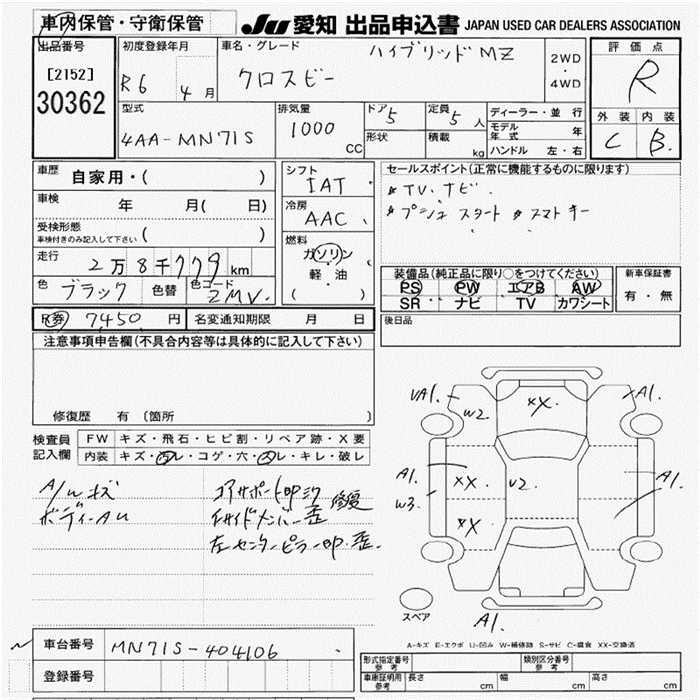 車内保管・守衛保管
JU 愛知 出品申込書 JAPAN USED CAR DEALERS ASSOCIATION
出品番号
[2152]
30362
初度登録年月
R6 4月
車名・グレード
ハイブリッドMZ
クロスビー
2WD
・
4WD
評価点
R
外装 内装
C B.
型式
4AA-MN71S
排気量
1000 CC
ドア 5
形状
定員 5人
積載 kg
ディーラー・並行
モデル年式 年
ハンドル 左・右
車歴 自家用・( )
車検 年 月( 日)
受検形態
車検付きのみ記入して下さい ( )
走行 2万8千779km
色 ブラック 色替 色コード ZMV.
シフト
IAT
冷房
AAC
燃料
ガソリン
・
軽・油
( )
セールスポイント(正常に機能するものに限ります)
*TV.ナビ.
*プッシュスタート *スマトキー
装備品(純正品に限り○をつけてください)
PS PW エアB AW
SR ナビ TV カワシート
新車保証書
有・無
R券 7450円 名変通知期限 月 日
後日品
注意事項申告欄(不具合内容等は具体的に記入して下さい)
修復歴 有 〔箇所 〕
検査員
記入欄
FW キズ・飛石・ヒビ割・リペア跡・X要
内装 キズ・汚レ・コゲ・穴・スレ・キレ・破レ
A/Wキズ
ボディーAU
コアサポート凹ミク
インサイドメンバー歪 修復
左センターピラー凹.歪.
UA1. W2. XX. A1.
A1. W3. XX. U2. A1.
XX.
A1.
スペア
A-キズ E-エクボ U-凹み W-補修跡 S-サビ C-腐食 XX-交換済
車台番号 MN71S-404106
登録番号
形式指定番号
参考
類別区分番号
参考
車庫証明用
参考
長さ cm 幅 cm 高さ cm